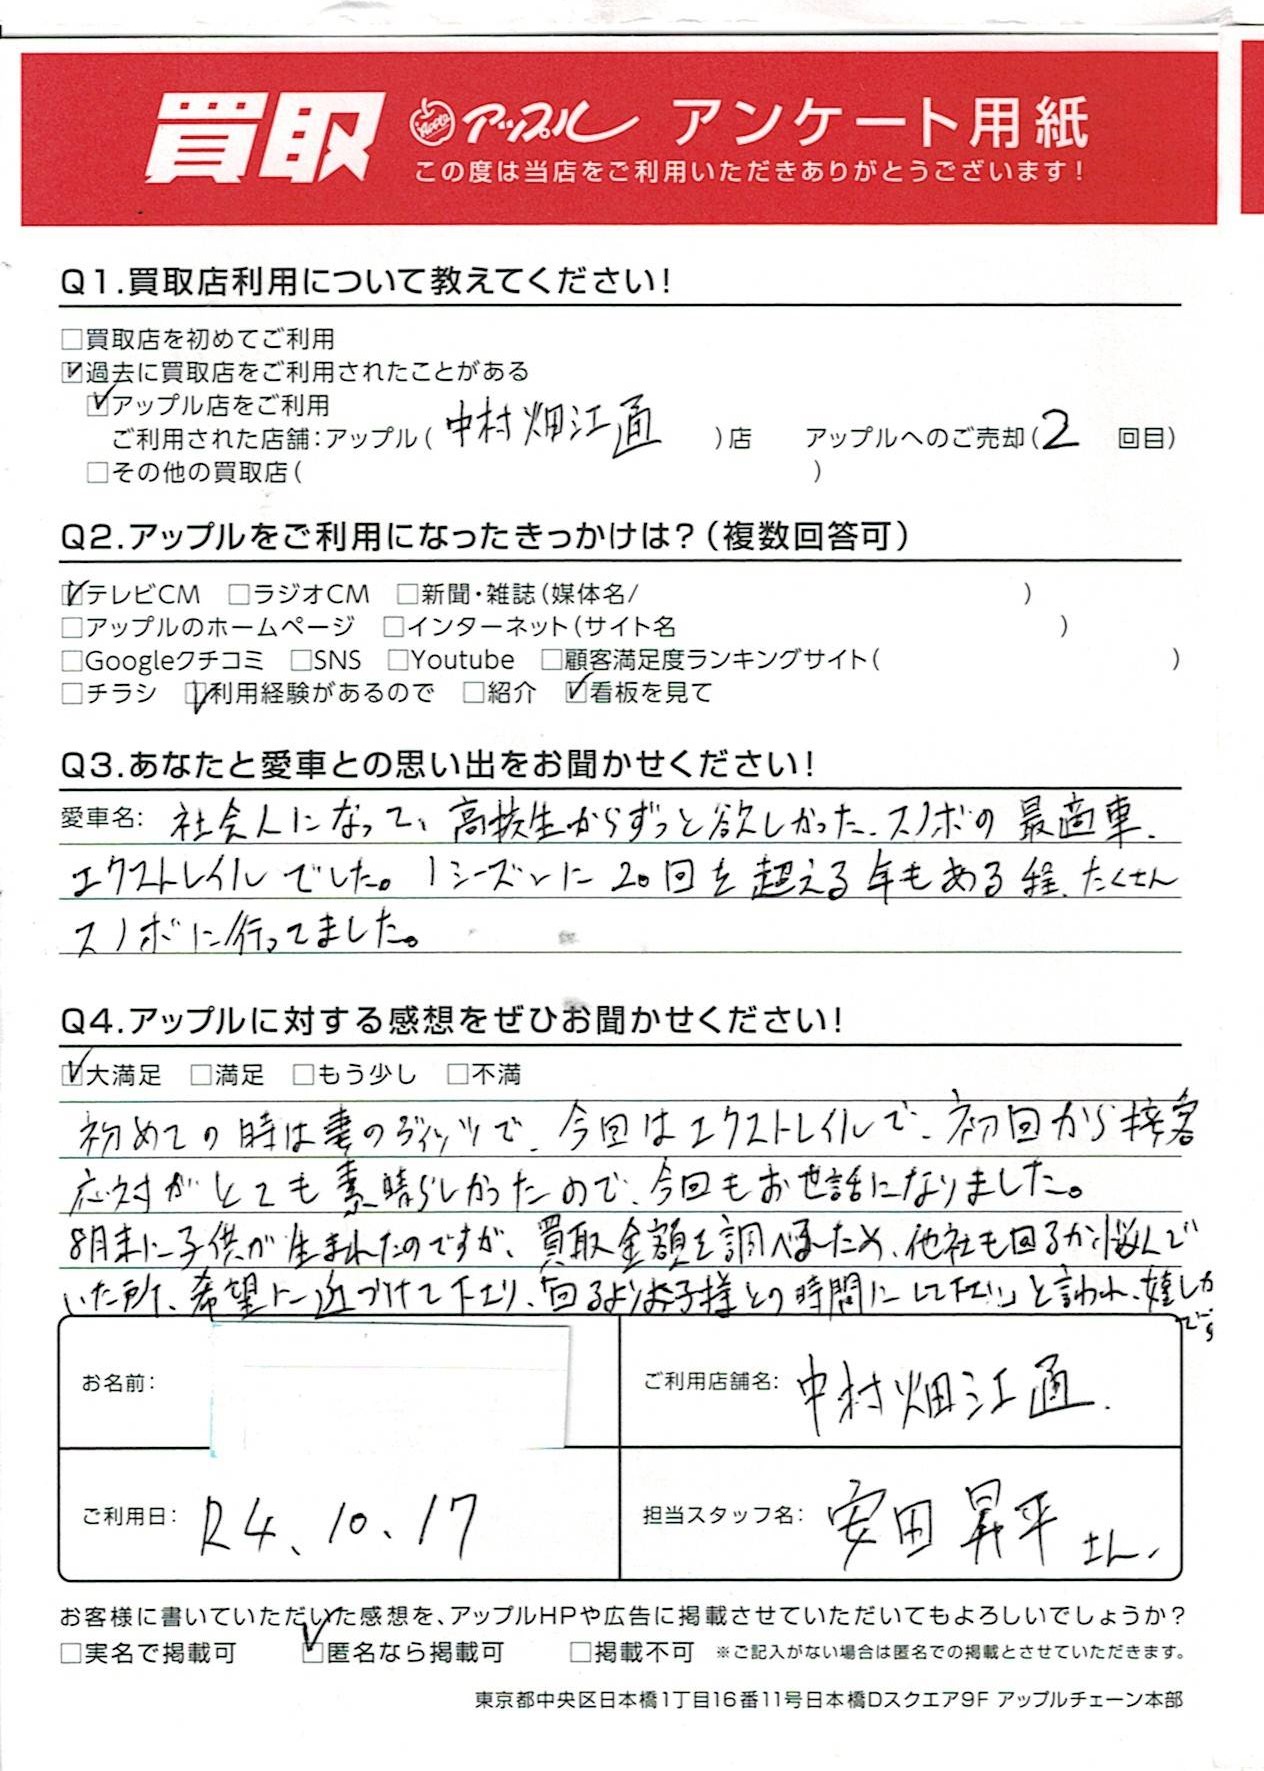 買取 Apple アップル アンケート用紙
この度は当店をご利用いただきありがとうございます!
Q1.買取店利用について教えてください!
□買取店を初めてご利用
☑過去に買取店をご利用されたことがある
☑アップル店をご利用
ご利用された店舗:アップル(中村畑江通)店 アップルへのご売却(2回目)
□その他の買取店( )
Q2.アップルをご利用になったきっかけは?(複数回答可)
☑テレビCM □ラジオCM □新聞・雑誌(媒体名/ )
□アップルのホームページ □インターネット(サイト名 )
□Googleクチコミ □SNS □Youtube □顧客満足度ランキングサイト( )
□チラシ ☑利用経験があるので □紹介 ☑看板を見て
Q3.あなたと愛車との思い出をお聞かせください!
愛車名: 社会人になって、高校生からずっと欲しかった、スノボの最適車、
エクストレイルでした。1シーズンに20回を超える年もある程、たくさん
スノボに行ってました。
Q4.アップルに対する感想をぜひお聞かせください!
☑大満足 □満足 □もう少し □不満
初めての時は妻のヴィッツで、今回はエクストレイルで、初回から接客
応対がとても素晴らしかったので、今回もお世話になりました。
8月末に子供が生まれたのですが、買取金額を調べるため、他社も回るか悩んで
いた所、希望に近づけて下さり、「回るよりお子様との時間にして下さい」と言われ、嬉しか
です
お名前:
ご利用店舗名: 中村畑江通.
ご利用日: R4、10、17
担当スタッフ名: 安田昇平さん、
お客様に書いていただいた感想を、アップルHPや広告に掲載させていただいてもよろしいでしょうか?
□実名で掲載可 ☑匿名なら掲載可 □掲載不可 ※ご記入がない場合は匿名での掲載とさせていただきます。
東京都中央区日本橋1丁目16番11号日本橋Dスクエア9F アップルチェーン本部